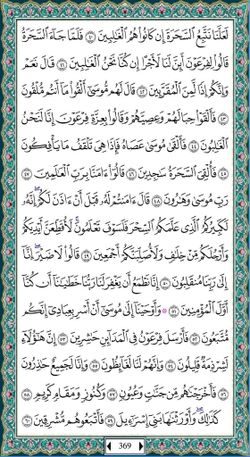 لَعَلَّنَا نَتَّبِعُ ٱلسَّحَرَةَ إِن كَانُوا۟ هُمُ ٱلْغَٰلِبِينَ ٤٠ فَلَمَّا جَآءَ ٱلسَّحَرَةُ
قَالُوا۟ لِفِرْعَوْنَ أَئِنَّ لَنَا لَأَجْرًا إِن كُنَّا نَحْنُ ٱلْغَٰلِبِينَ ٤١ قَالَ نَعَمْ
وَإِنَّكُمْ إِذًا لَّمِنَ ٱلْمُقَرَّبِينَ ٤٢ قَالَ لَهُم مُّوسَىٰٓ أَلْقُوا۟ مَآ أَنتُم مُّلْقُونَ
٤٣ فَأَلْقَوْا۟ حِبَالَهُمْ وَعِصِيَّهُمْ وَقَالُوا۟ بِعِزَّةِ فِرْعَوْنَ إِنَّا لَنَحْنُ
ٱلْغَٰلِبُونَ ٤٤ فَأَلْقَىٰ مُوسَىٰ عَصَاهُ فَإِذَا هِىَ تَلْقَفُ مَا يَأْفِكُونَ
٤٥ فَأُلْقِىَ ٱلسَّحَرَةُ سَٰجِدِينَ ٤٦ قَالُوٓا۟ ءَامَنَّا بِرَبِّ ٱلْعَٰلَمِينَ ٤٧
رَبِّ مُوسَىٰ وَهَٰرُونَ ٤٨ قَالَ ءَامَنتُمْ لَهُۥ قَبْلَ أَنْ ءَاذَنَ لَكُمْ إِنَّهُۥ
لَكَبِيرُكُمُ ٱلَّذِى عَلَّمَكُمُ ٱلسِّحْرَ فَلَسَوْفَ تَعْلَمُونَ لَأُقَطِّعَنَّ أَيْدِيَكُمْ
وَأَرْجُلَكُم مِّنْ خِلَٰفٍ وَلَأُصَلِّبَنَّكُمْ أَجْمَعِينَ ٤٩ قَالُوا۟ لَا ضَيْرَ إِنَّآ
إِلَىٰ رَبِّنَا مُنقَلِبُونَ ٥٠ إِنَّا نَطْمَعُ أَن يَغْفِرَ لَنَا رَبُّنَا خَطَٰيَٰنَآ أَن كُنَّآ
أَوَّلَ ٱلْمُؤْمِنِينَ ٥١ وَأَوْحَيْنَآ إِلَىٰ مُوسَىٰٓ أَنْ أَسْرِ بِعِبَادِىٓ إِنَّكُم
مُّتَّبَعُونَ ٥٢ فَأَرْسَلَ فِرْعَوْنُ فِى ٱلْمَدَآئِنِ حَٰشِرِينَ ٥٣ إِنَّ هَٰٓؤُلَآءِ
لَشِرْذِمَةٌ قَلِيلُونَ ٥٤ وَإِنَّهُمْ لَنَا لَغَآئِظُونَ ٥٥ وَإِنَّا لَجَمِيعٌ حَٰذِرُونَ
٥٦ فَأَخْرَجْنَٰهُم مِّن جَنَّٰتٍ وَعُيُونٍ ٥٧ وَكُنُوزٍ وَمَقَامٍ كَرِيمٍ ٥٨
كَذَٰلِكَ وَأَوْرَثْنَٰهَا بَنِىٓ إِسْرَٰٓءِيلَ ٥٩ فَأَتْبَعُوهُم مُّشْرِقِينَ ٦٠
369